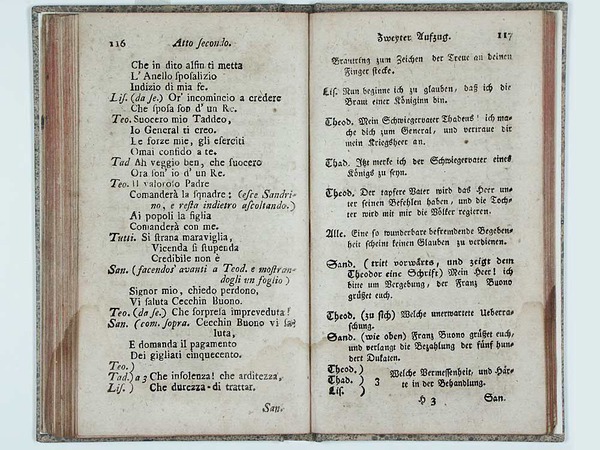 116 Atto secondo.
Che in dito alfin ti metta
L' Anello sposalizio
Indizio di mia fe.
Lis. (da se.) Or' incomincio a credere
Che sposa son d' un Re.
Teo. Suocero mio Taddeo,
Io General ti creo.
Le forze mie, gli eserciti
Omai confido a te.
Tad Ah veggio ben, che suocero
Ora son' io d' un Re.
Teo. Il valoroso Padre
Comanderà la squadre: (esce Sandri-
no, e resta indietro ascoltando.)
Ai popoli la figlia
Comanderà con me.
Tutti. Si strana maraviglia,
Vicenda si stupenda
Credibile non è
San. (facendos' avanti a Teod. e mostran-
dogli un foglio)
Signor mio, chiedo perdono,
Vi saluta Cecchin Buono.
Teo. (da se.) Che sorpresa impreveduta!
San. (com. sopra. Cecchin Buono vi sa-
luta,
E domanda il pagamento
Dei gigliati cinquecento.
Teo.)
Tad.) a 3 Che insolenza! che arditezza,
Lis. ) Che durezza di trattar.
San.
Zweyter Aufzug. 117
Brautring zum Zeichen der Treue an deinen
Finger stecke.
Lis. Nun beginne ich zu glauben, daß ich die
Braut einer Königinn bin.
Theod. Mein Schwiegervater Thadeus! ich ma-
che dich zum General, und vertraue dir
mein Kriegsheer an.
Thad. Itzt merke ich der Schwiegervater eines
Königs zu seyn.
Theod. Der tapfere Vater wird das Heer un-
ter seinen Befehlen haben, und die Toch-
ter wird mit mir die Völker regieren.
Alle. Eine so wunderbare befremdende Begeben-
heit scheint keinen Glauben zu verdienen.
Sand. (tritt vorwärts, und zeigt dem
Theodor eine Schrift) Mein Herr! ich
bitte um Vergebung, der Franz Buono
grüßet euch.
Theod. (zu sich) Welche unerwartete Ueberra-
schung.
Sand. (wie oben) Franz Buono grüßet euch,
und verlangt die Bezahlung der fünf hun-
dert Dukaten.
Theod. )
Thad. ) 3 Welche Vermessenheit, und Här-
Lis. ) te in der Behandlung.
H 3 San.